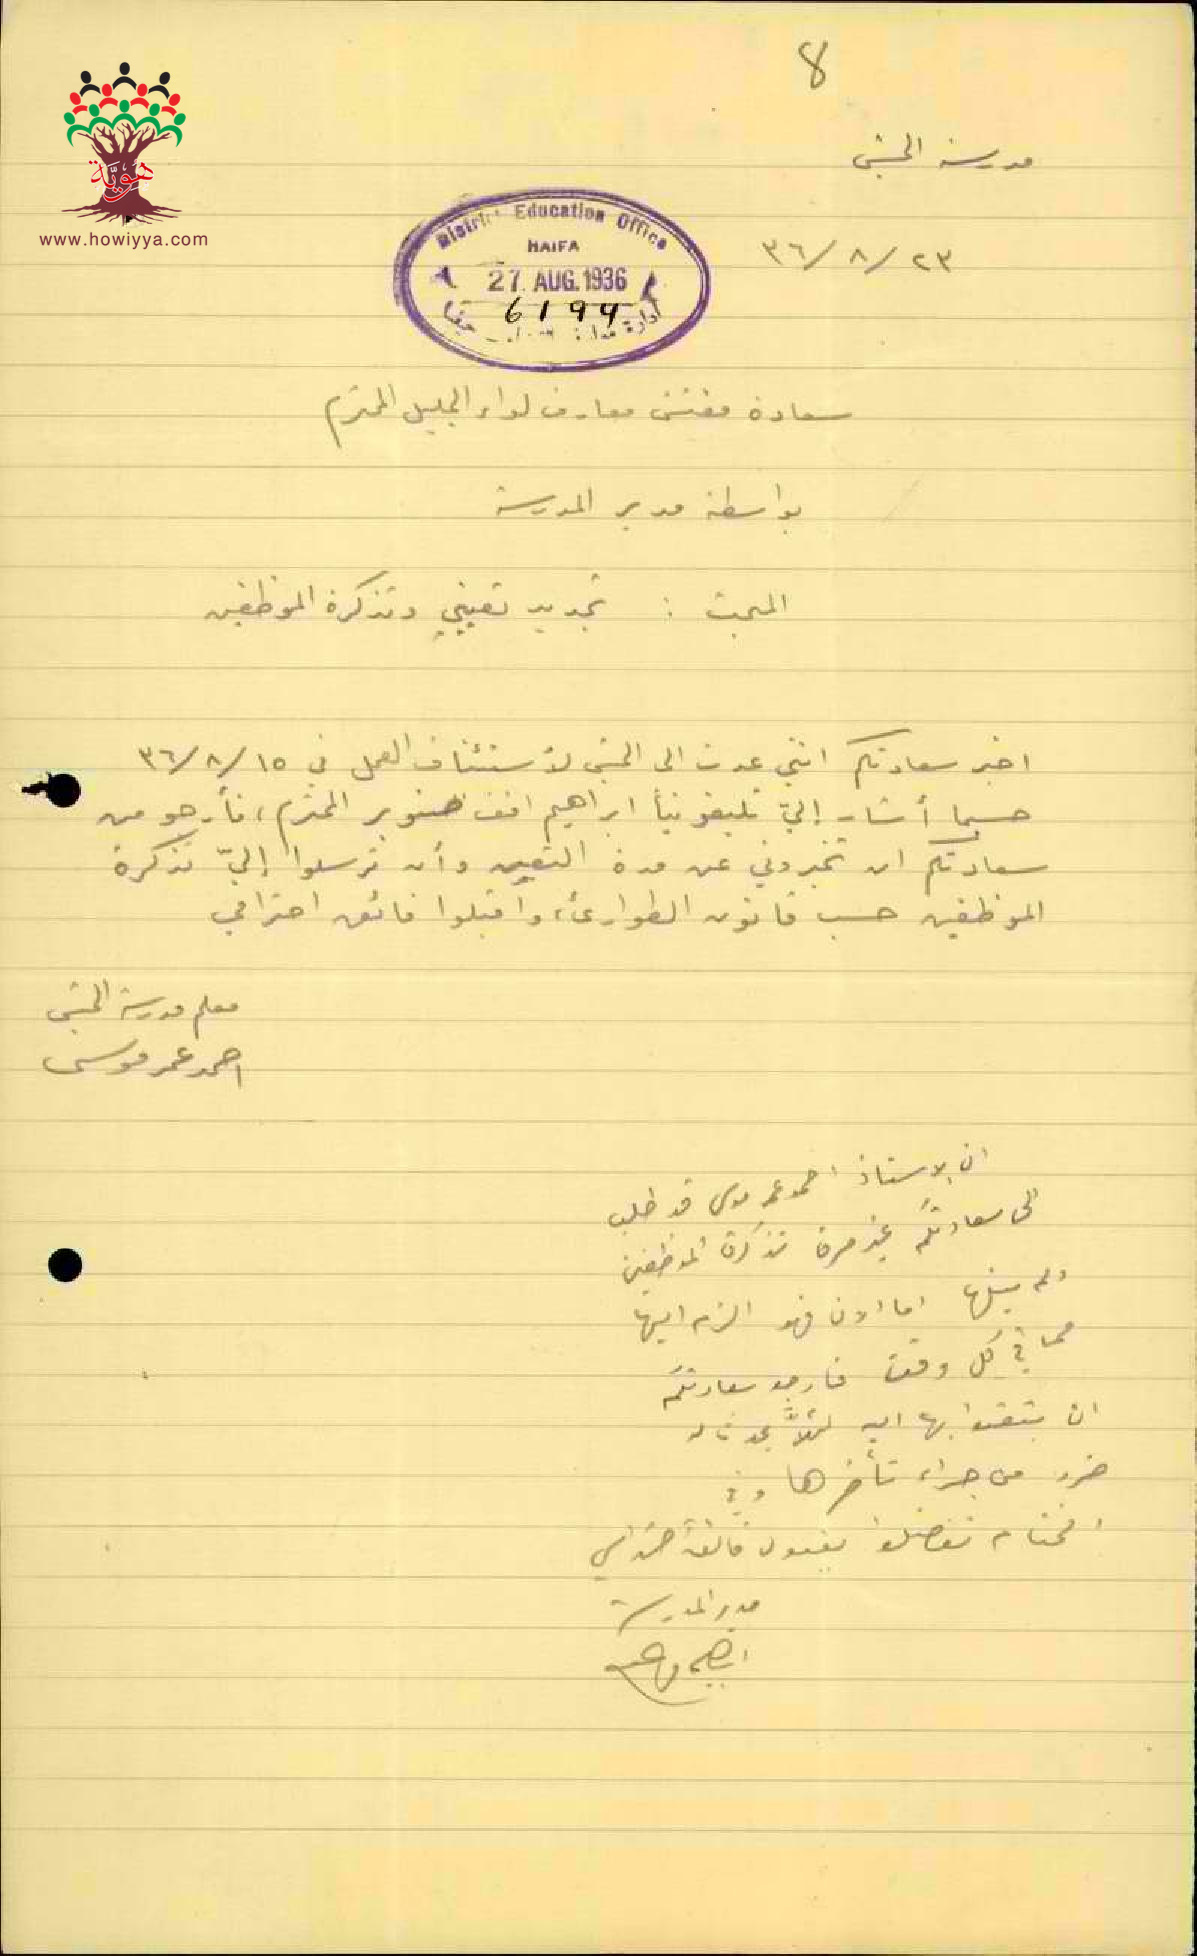 8
هويّة
www.howiyya.com
مدرسة الجش
٢٣/٨/٣٦
District Education Office
HAIFA
27 AUG. 1936
6199
إدارة حيفا
سعادة مفتش معارف لواء الجليل المحترم
بواسطة مدير المدرسة
المبحث : تجديد تعييني وتذكرة الموظفين
اخبر سعادتكم انني عدت الى الجش لأستئناف العمل في ١٥/٨/٣٦
حسبما أشار إليّ تليفونياً ابراهيم افندي صنوبر المحترم، فأرجو من
سعادتكم ان تخبروني عن مدة التعيين وأن ترسلوا إليّ تذكرة
الموظفين حسب قانون الطوارئ، واقبلوا فائق احترامي
معلم مدرسة الجش
احمد عمر موسى
ان الاستاذ احمد عمر موسى قد طلب
الى سعادتكم غير مرة تذكرة الموظفين
ولم ينلها اما الان فهو الزم اليها
مما في كل وقت فارجو سعادتكم
ان بها اليه لئلا يحدث له
ضرر من جراء تأخرها وفي
الختام تفضلوا بقبول فائق احترامي
مدير المدرسة